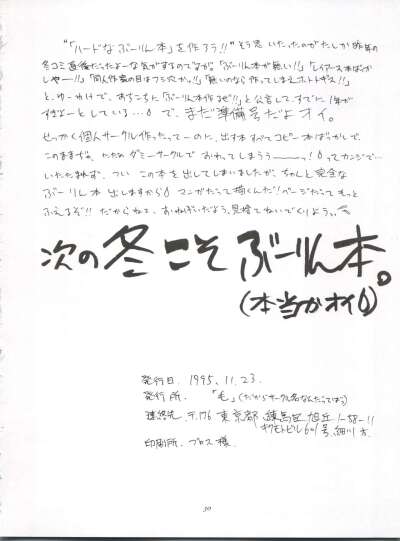 "「ハードなぶーりん本」を作ろう!!" そう思いたったのがたしか昨年の
冬コミ直後だったよーな気がするのですがなぁ「ぶーりん本が無い!!」「レイアース本ばっか
しゃー!!」「同人作家の目はフシ穴かっ!!」「無いのなら作ってしまえホトトギス!!」
と、ゆーわけで、あちこちに「ぶーりん本作るぜ!!」と公言して、すでに1年が
すぎよーとしている… で、まだ準備号だよオイ。
せっかく個人サークル作ったってーのに、出す本すべてコピー本ばかしで、
このままぢゃ、ただのダミーサークルでおわってしまうーっ!ってカンジで…
いたたまれず、つい この本を出してしまいましたが、ちゃんと完全な
ぶーりん本 出しますから マンガだって描くんだ!! ページだってもっと
ふえるぞ!! だからねっ、おねがいだよう、見捨てないでくりようっ
次の冬こそぶーりん本。
(本当かオイ)
発行日. 1995.11.23.
発行所. 「毛」(だからサークル名なんだってばう)
連絡先. 〒176 東京都練馬区旭丘1-58-11
キクモトビル601号 細川方
印刷所. プロス様
30